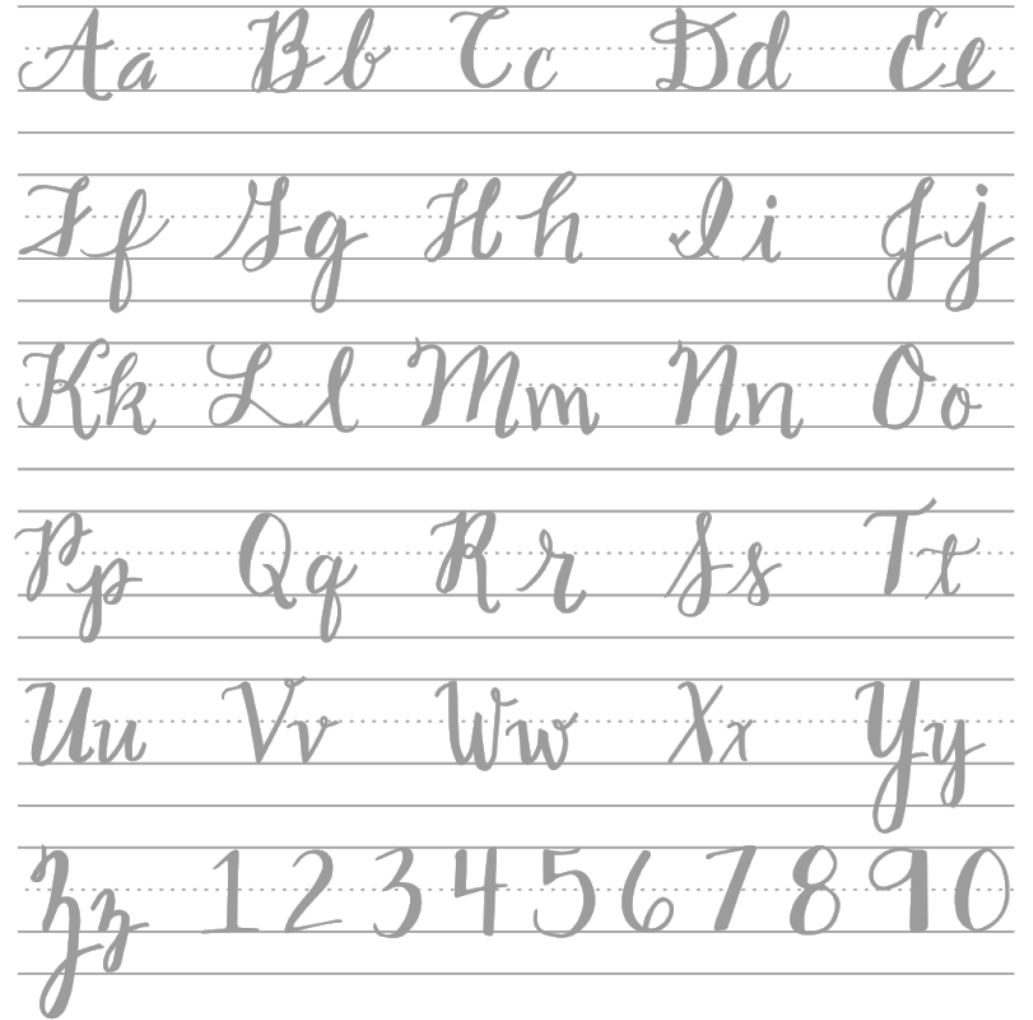 Aa Bb Cc Dd Ee
Ff Gg Hh Ii Jj
Kk Ll Mm Nn Oo
Pp Qq Rr Ss Tt
Uu Vv Ww Xx Yy
Zz 1 2 3 4 5 6 7 8 9 0